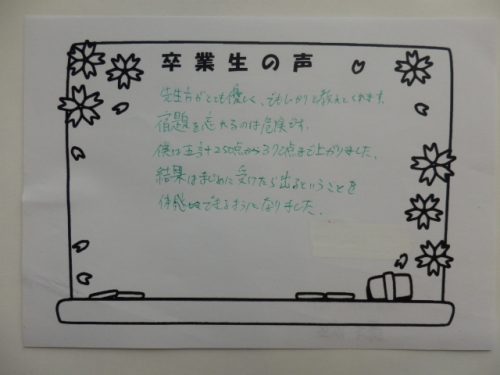 卒業生の声
先生方がとても優しく、でもしっかりと教えてくれます。
宿題を忘れるのは危険です。
僕は五計250点から372点まで上がりました。
結果はまじめに受けたら出るということを
体感できるようになりました。